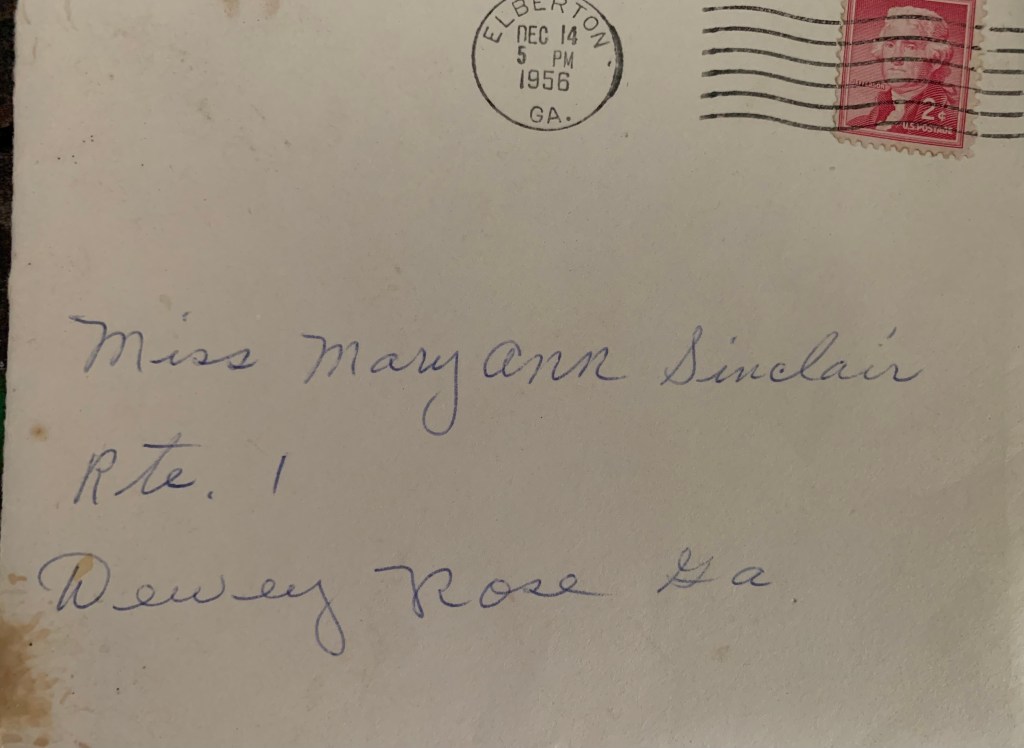 ELBERTON,
DEC 14
5 PM
1956
GA.
2¢
U.S. POSTAGE
Miss Mary Ann Sinclair
Rte. 1
Dewey Rose Ga.